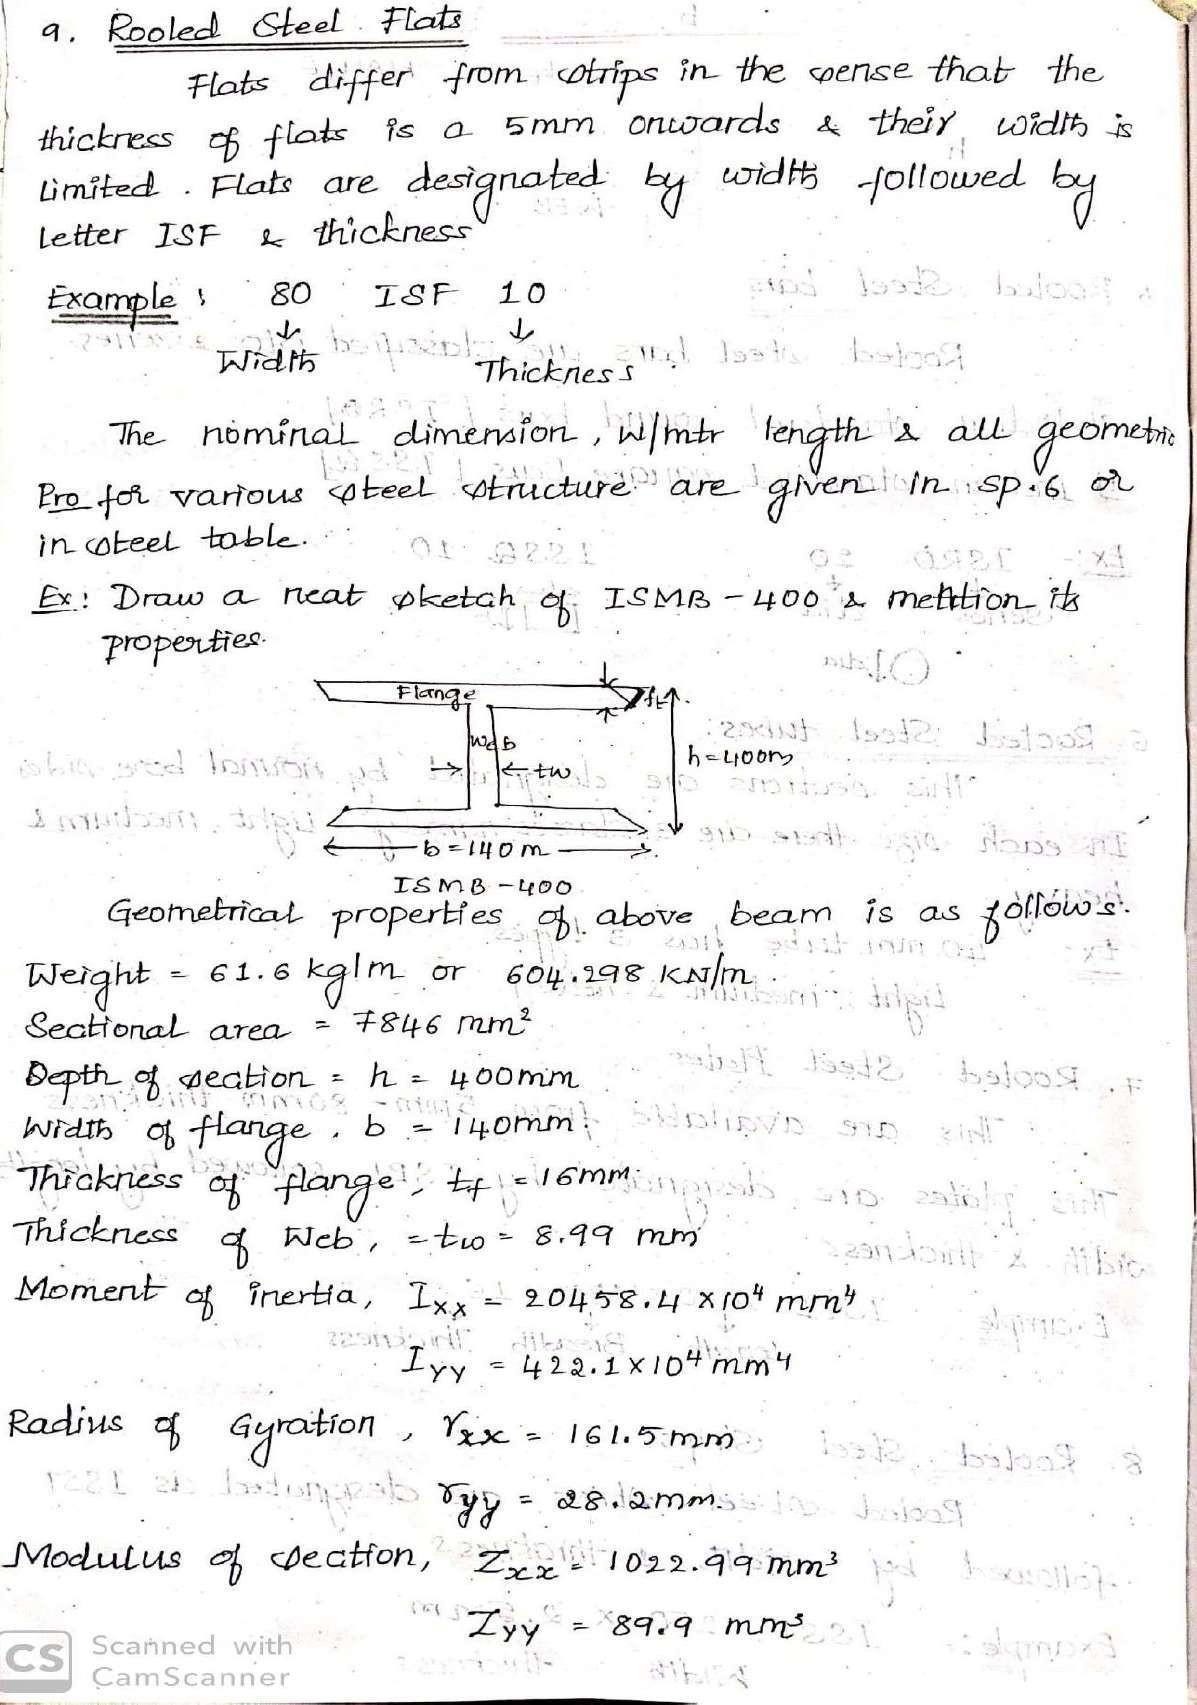 9. Rooled Steel Flats
Flats differ from strips in the sense that the
thickness of flats is a 5mm onwards & their width is
limited. Flats are designated by width followed by
letter ISF & thickness
Example : 80 ISF 10
Width Thickness
The nominal dimension, W/mtr length & all geometric
Pro for various steel structure are given in sp.6 or
in steel table.
Ex: Draw a neat sketch of ISMB - 400 & mention its
properties.
Flange
tf
Web
tw
h=400m
b=140m
ISMB-400
Geometrical properties of above beam is as follows.
Weight = 61.6 kg/m or 604.298 KN/m.
Sectional area = 7846 mm²
Depth of section = h = 400mm
Width of flange, b = 140mm.
Thickness of flange, tf = 16mm.
Thickness of Web, = tw = 8.99 mm
Moment of inertia, Ixx = 20458.4 x 10⁴ mm⁴
Iyy = 422.1 x 10⁴ mm⁴
Radius of Gyration, rxx = 161.5 mm
ryy = 28.2mm.
Modulus of section, Zxx = 1022.99 mm³
Zyy = 89.9 mm³
CS Scanned with
CamScanner